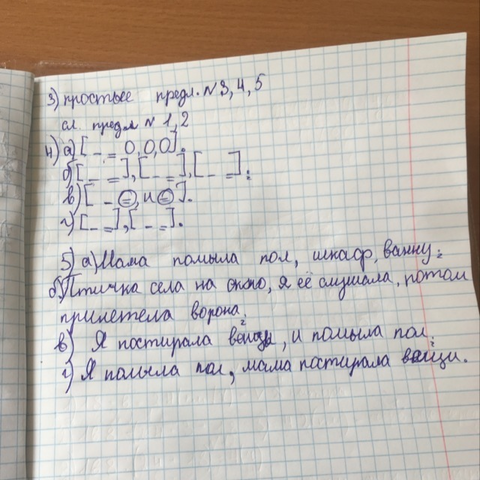 3) простые предл. №3, 4, 5
сл. предл №1, 2
4) а) [_ = О, О, О].
б) [_ =], [_ =], [_ =].
в) [_ =, и =].
г) [_ =], [_ =].
5) а) Мама помыла пол, шкаф, ванну;
б) Птичка села на окно, я её слушала, потом
прилетела ворона;
в) Я постирала вещи, и помыла пол;
г) Я помыла пол, мама постирала вещи.